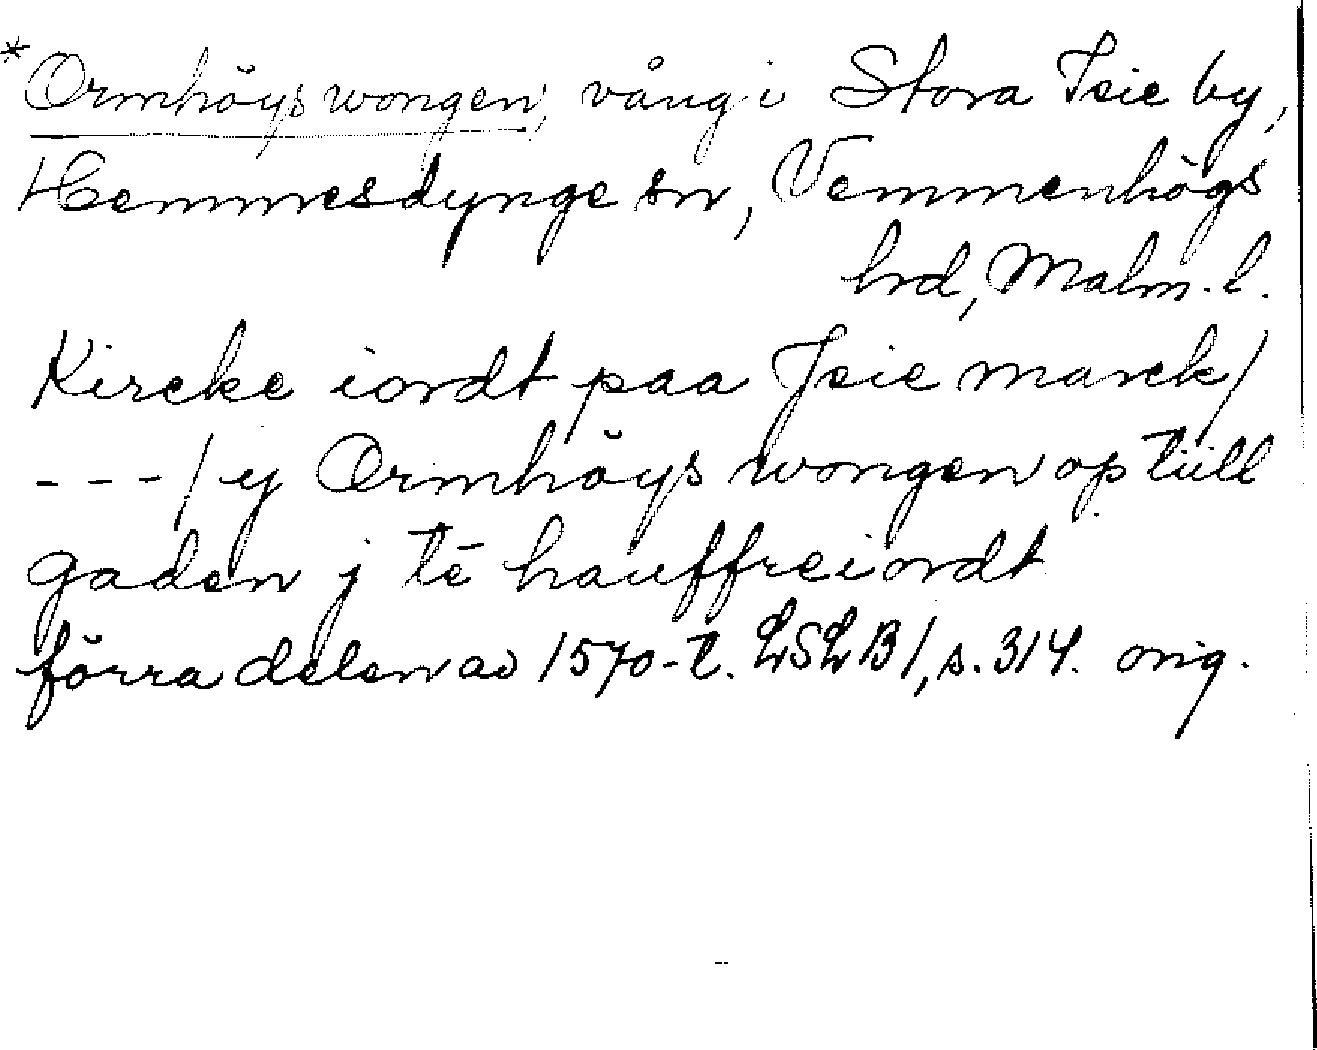 *Ormhöys wongen, vång i Stora Isie by,
Hemmesdynge sn, Vemmenhögs
hrd, Malm. l.
Kircke iordt paa Jsie marck/
---/ y Ormhöys wongen op tiill
gaden j tē hauffreiordt
förra delen av 1570-t. LSLB1, s. 314. orig.